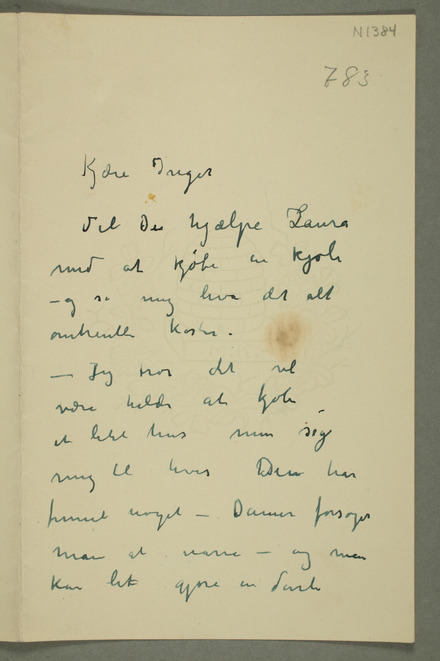 N1384
783
Kjære Inger
Vil De hjælpe Laura
med at kjøbe en kjole
– og si mig hva det alt
omtrentlig koster.
– Jeg tror det vil
være heldig at kjøbe
et lidet hus men sig
mig til hvis De har
funnet noget – Damer forsøger
man at narre – og man
kan let gjøre en dårlig